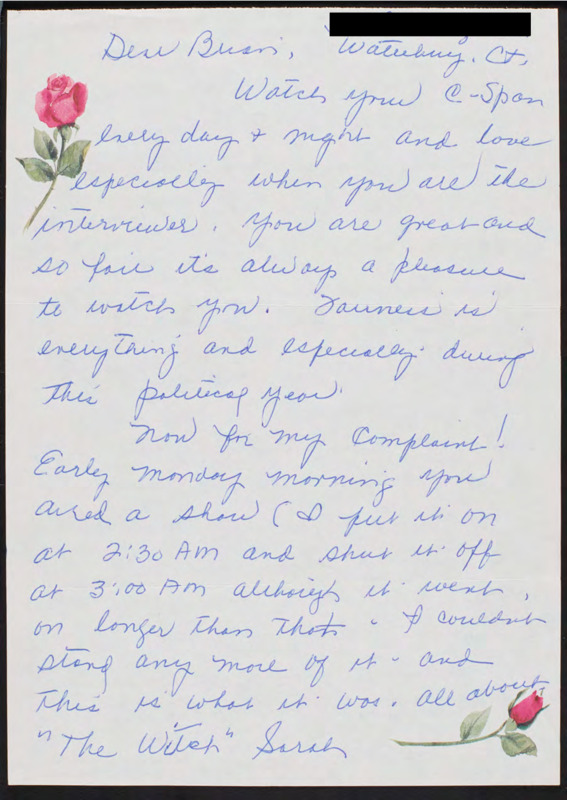 Dear Brian, Waterbury, Ct,
Watch your C-Span
every day & night and love
especially when you are the
interviewer. You are great and
so fair it's always a pleasure
to watch you. Fairness is
everything and especially during
this political year.
Now for my complaint!
Early Monday morning you
aired a show (I put it on
at 2:30 AM and shut it off
at 3:00 AM although it went
on longer than that - I couldn't
stand any more of it - and
this is what it was. all about
"The Witch" Sarah